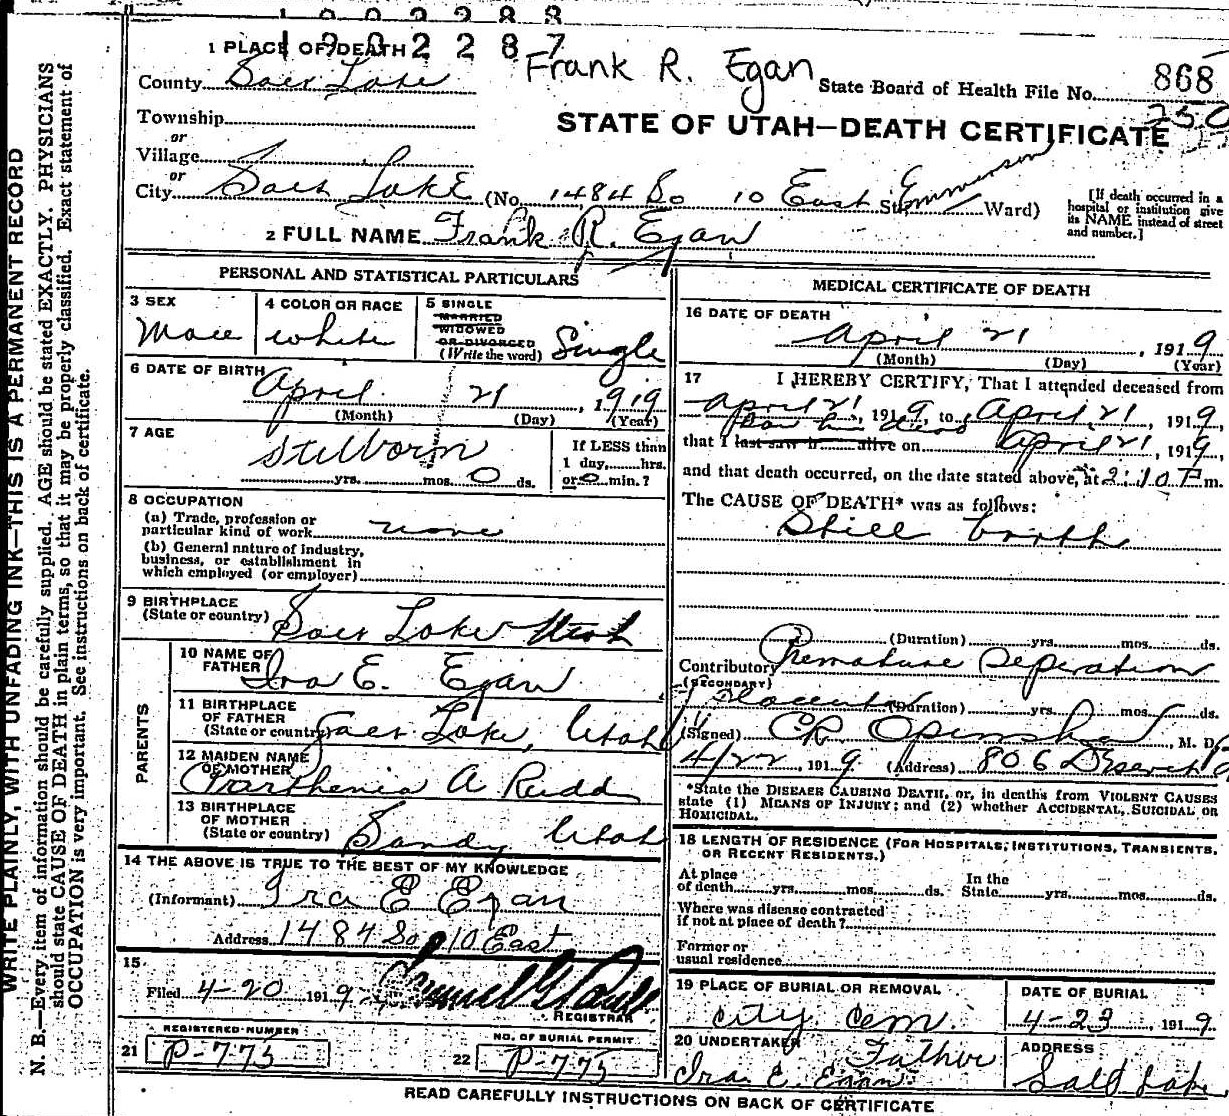 1902287
1 PLACE OF DEATH
Frank R. Egan
County Salt Lake
State Board of Health File No. 868
250
Township
or
Village
or
STATE OF UTAH—DEATH CERTIFICATE
City Salt Lake (No. 1484 So 10 East St. Emmerson Ward)
[If death occurred in a
hospital or institution give
its NAME instead of street
and number.]
2 FULL NAME Frank R. Egan
PERSONAL AND STATISTICAL PARTICULARS
3 SEX
Male
4 COLOR OR RACE
white
5 SINGLE
MARRIED
WIDOWED
OR DIVORCED
(Write the word) Single
6 DATE OF BIRTH
April 21, 1919
(Month) (Day) (Year)
7 AGE
Stillborn
yrs. mos. 0 ds.
If LESS than
1 day, hrs.
or 0 min.?
8 OCCUPATION
(a) Trade, profession or
particular kind of work none
(b) General nature of industry,
business, or establishment in
which employed (or employer)
9 BIRTHPLACE
(State or country) Salt Lake Utah
PARENTS
10 NAME OF
FATHER Ira E. Egan
11 BIRTHPLACE
OF FATHER
(State or country) Salt Lake, Utah
12 MAIDEN NAME
OF MOTHER
Parthenia A Rudd
13 BIRTHPLACE
OF MOTHER
(State or country) Sandy Utah
14 THE ABOVE IS TRUE TO THE BEST OF MY KNOWLEDGE
(Informant) Ira E Egan
Address 1484 So 10 East
15
Filed 4-20 1919
REGISTRAR
REGISTERED NUMBER
21 P-775
NO. OF BURIAL PERMIT
22 P-775
MEDICAL CERTIFICATE OF DEATH
16 DATE OF DEATH
April 21, 1919
(Month) (Day) (Year)
17 I HEREBY CERTIFY, That I attended deceased from
April 21, 1919, to April 21, 1919,
that I last saw h alive on April 21, 1919,
and that death occurred, on the date stated above, at 2:10 P m.
The CAUSE OF DEATH* was as follows:
Still birth
(Duration) yrs. mos. ds.
Contributory Premature Seperation
(SECONDARY)
of Placenta (Duration) yrs. mos. ds.
(Signed) CR Openshaw, M. D.
4/22, 1919. (Address) 806 Deseret
*State the DISEASE CAUSING DEATH, or, in deaths from VIOLENT CAUSES
state (1) MEANS OF INJURY; and (2) whether ACCIDENTAL, SUICIDAL OR
HOMICIDAL.
18 LENGTH OF RESIDENCE (FOR HOSPITALS, INSTITUTIONS, TRANSIENTS,
OR RECENT RESIDENTS.)
At place
of death yrs. mos. ds.
In the
State yrs. mos. ds.
Where was disease contracted
if not at place of death?
Former or
usual residence
19 PLACE OF BURIAL OR REMOVAL
City Cem.
DATE OF BURIAL
4-23, 1919.
20 UNDERTAKER Father
Ira E. Egan
ADDRESS
Salt Lake
READ CAREFULLY INSTRUCTIONS ON BACK OF CERTIFICATE
WRITE PLAINLY, WITH UNFADING INK—THIS IS A PERMANENT RECORD
N. B.—Every item of information should be carefully supplied. AGE should be stated EXACTLY. PHYSICIANS
should state CAUSE OF DEATH in plain terms, so that it may be properly classified. Exact statement of
OCCUPATION is very important. See instructions on back of certificate.